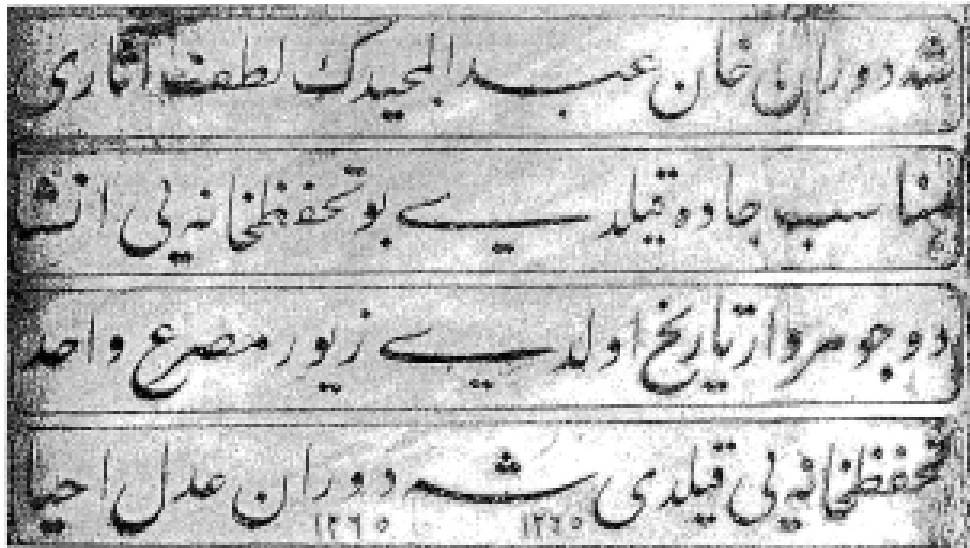 شه دوران خان عبد المجیدك لطف آثاری
مناسب جاده قیلدی بو تحفظخانه یی انشا
دو جوهروار تاریخ اولدی زیور مصرع واحد
تحفظخانه یی قیلدی شه دوران عدل احیا
١٢٦٥ ١٢٦٥